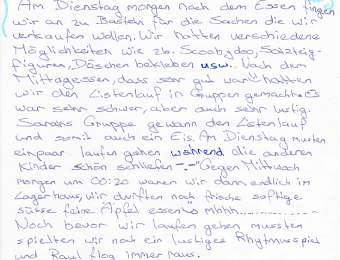 Am Dienstag morgen nach dem Essen fingen
wir an zu Basteln für die Sachen die wir
verkaufen wollen. Wir hatten verschiedene
Möglichkeiten wie zb. Scoobydoo, Salzteig-
figuren, Döschen bekleben usw. Nach dem
Mittagessen, dass sehr gut war hatten
wir den Listenlauf in Gruppen gemacht. Es
war sehr schwer, aber auch sehr lustig.
Sarahs Gruppe gewann den Listenlauf
und somit auch ein Eis. Am Dienstag mussten
einpaar laufen gehen während die anderen
Kinder schön schliefen -.- "Gegen Mittwoch
morgen um 00:20 waren wir dann endlich im
Lagerhaus, wir durften noch frische saftige
süsse feine Äpfel essen mhhh...
Noch bevor wir laufen gehen mussten
spielten wir noch ein lustiges Rhytmusspiel
und Raul flog immer raus.